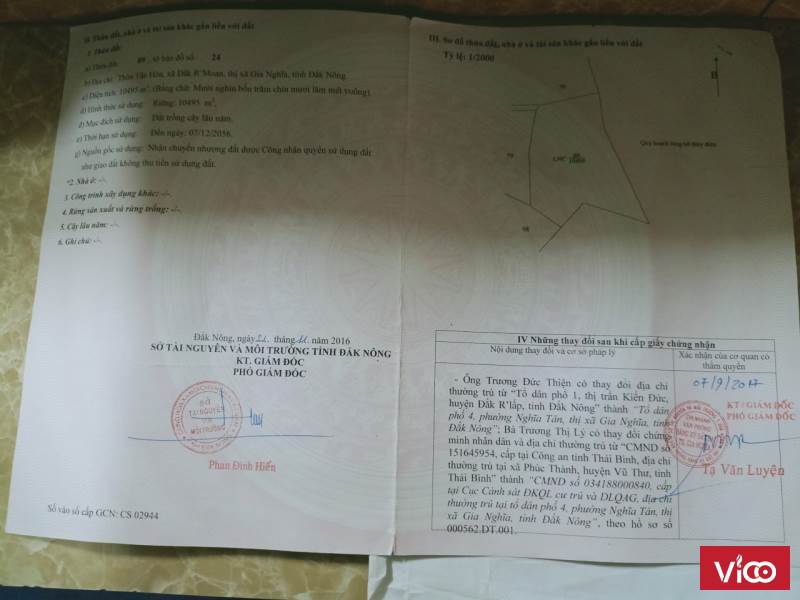 II. Thửa đất, nhà ở và tài sản khác gắn liền với đất
1. Thửa đất:
a) Thửa đất số: 89, tờ bản đồ số: 24
b) Địa chỉ: Thôn Tân Hòa, xã Đắk R'Moan, thị xã Gia Nghĩa, tỉnh Đắk Nông.
c) Diện tích: 10495 m², (Bằng chữ: Mười nghìn bốn trăm chín mươi lăm mét vuông).
d) Hình thức sử dụng: Riêng: 10495 m²,
đ) Mục đích sử dụng: Đất trồng cây lâu năm.
e) Thời hạn sử dụng: Đến ngày: 07/12/2056.
g) Nguồn gốc sử dụng: Nhận chuyển nhượng đất được Công nhận quyền sử dụng đất
như giao đất không thu tiền sử dụng đất.
2. Nhà ở: -/-.
3. Công trình xây dựng khác: -/-.
4. Rừng sản xuất và rừng trồng: -/-.
5. Cây lâu năm: -/-.
6. Ghi chú: -/-.
Đắk Nông, ngày tháng năm 2016
SỞ TÀI NGUYÊN VÀ MÔI TRƯỜNG TỈNH ĐẮK NÔNG
KT. GIÁM ĐỐC
PHÓ GIÁM ĐỐC
SỞ
TÀI NGUYÊN
VÀ
MÔI TRƯỜNG
Phan Đình Hiển
Số vào sổ cấp GCN: CS 02944
III. Sơ đồ thửa đất, nhà ở và tài sản khác gắn liền với đất
Tỷ lệ: 1/2000
B
Quy hoạch lòng hồ thủy điện
IV Những thay đổi sau khi cấp giấy chứng nhận
Nội dung thay đổi và cơ sở pháp lý
Xác nhận của cơ quan có
thẩm quyền
- Ông Trương Đức Thiện có thay đổi địa chỉ
thường trú từ "Tổ dân phố 1, thị trấn Kiến Đức,
huyện Đắk R'lấp, tỉnh Đắk Nông" thành "Tổ dân
phố 4, phường Nghĩa Tân, thị xã Gia Nghĩa, tỉnh
Đắk Nông"; Bà Trương Thị Lý có thay đổi chứng
minh nhân dân và địa chỉ thường trú từ "CMND số
151645954, cấp tại Công an tỉnh Thái Bình, địa chỉ
thường trú tại xã Phúc Thành, huyện Vũ Thư, tỉnh
Thái Bình" thành "CMND số 034188000840, cấp
tại Cục Cảnh sát ĐKQL cư trú và DLQG, địa chỉ
thường trú tại tổ dân phố 4, phường Nghĩa Tân, thị
xã Gia Nghĩa, tỉnh Đắk Nông", theo hồ sơ số
000562.DT.001.
07/9/2017
KT/GIÁM ĐỐC
PHÓ GIÁM ĐỐC
CHI NHÁNH
VĂN PHÒNG
Tạ Văn Luyện
ViCO